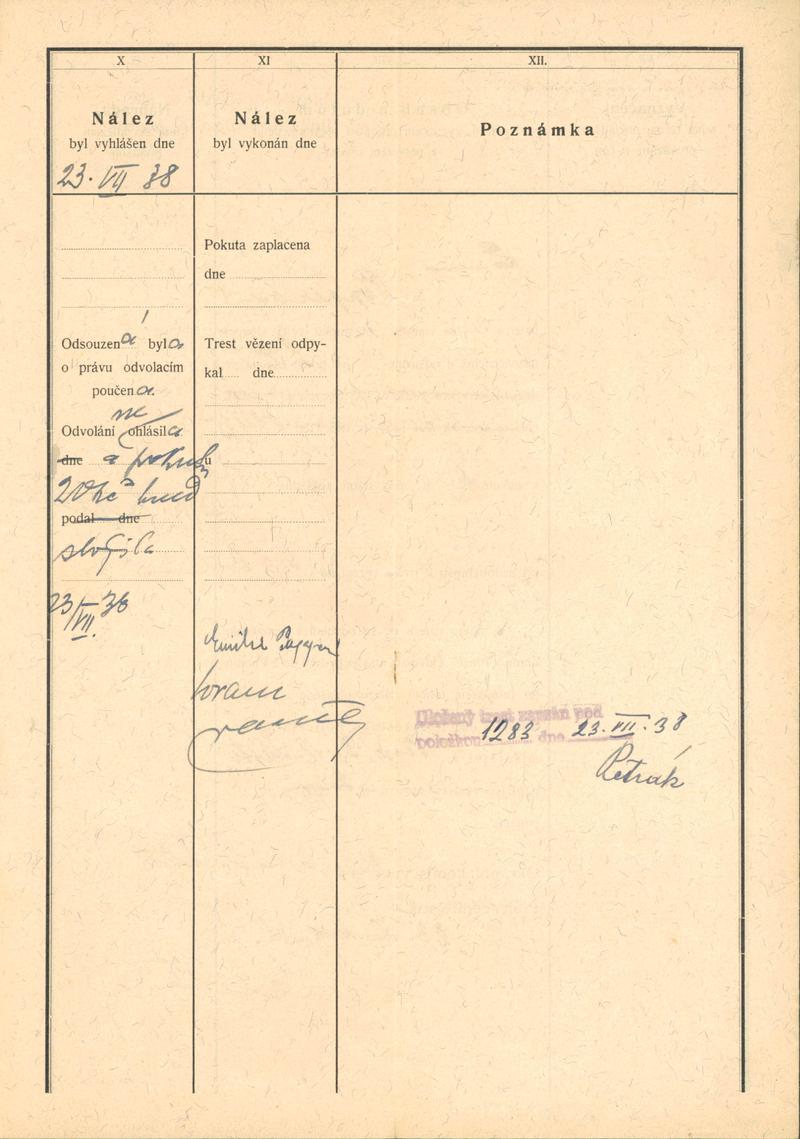 X
Nález
byl vyhlášen dne
23. VII 38
Odsouzená byla
o právu odvolacím
poučena.
Odvolání neohlásila
dne a pokutu
20 Kč hned
podal dne
složila
23/VII. 38
XI
Nález
byl vykonán dne
Pokuta zaplacena
dne
Trest vězení odpy-
kal dne
XII.
Poznámka
Uložený trest zapsán pod
položkou 1283 dne 23. VII. 38
Petrák